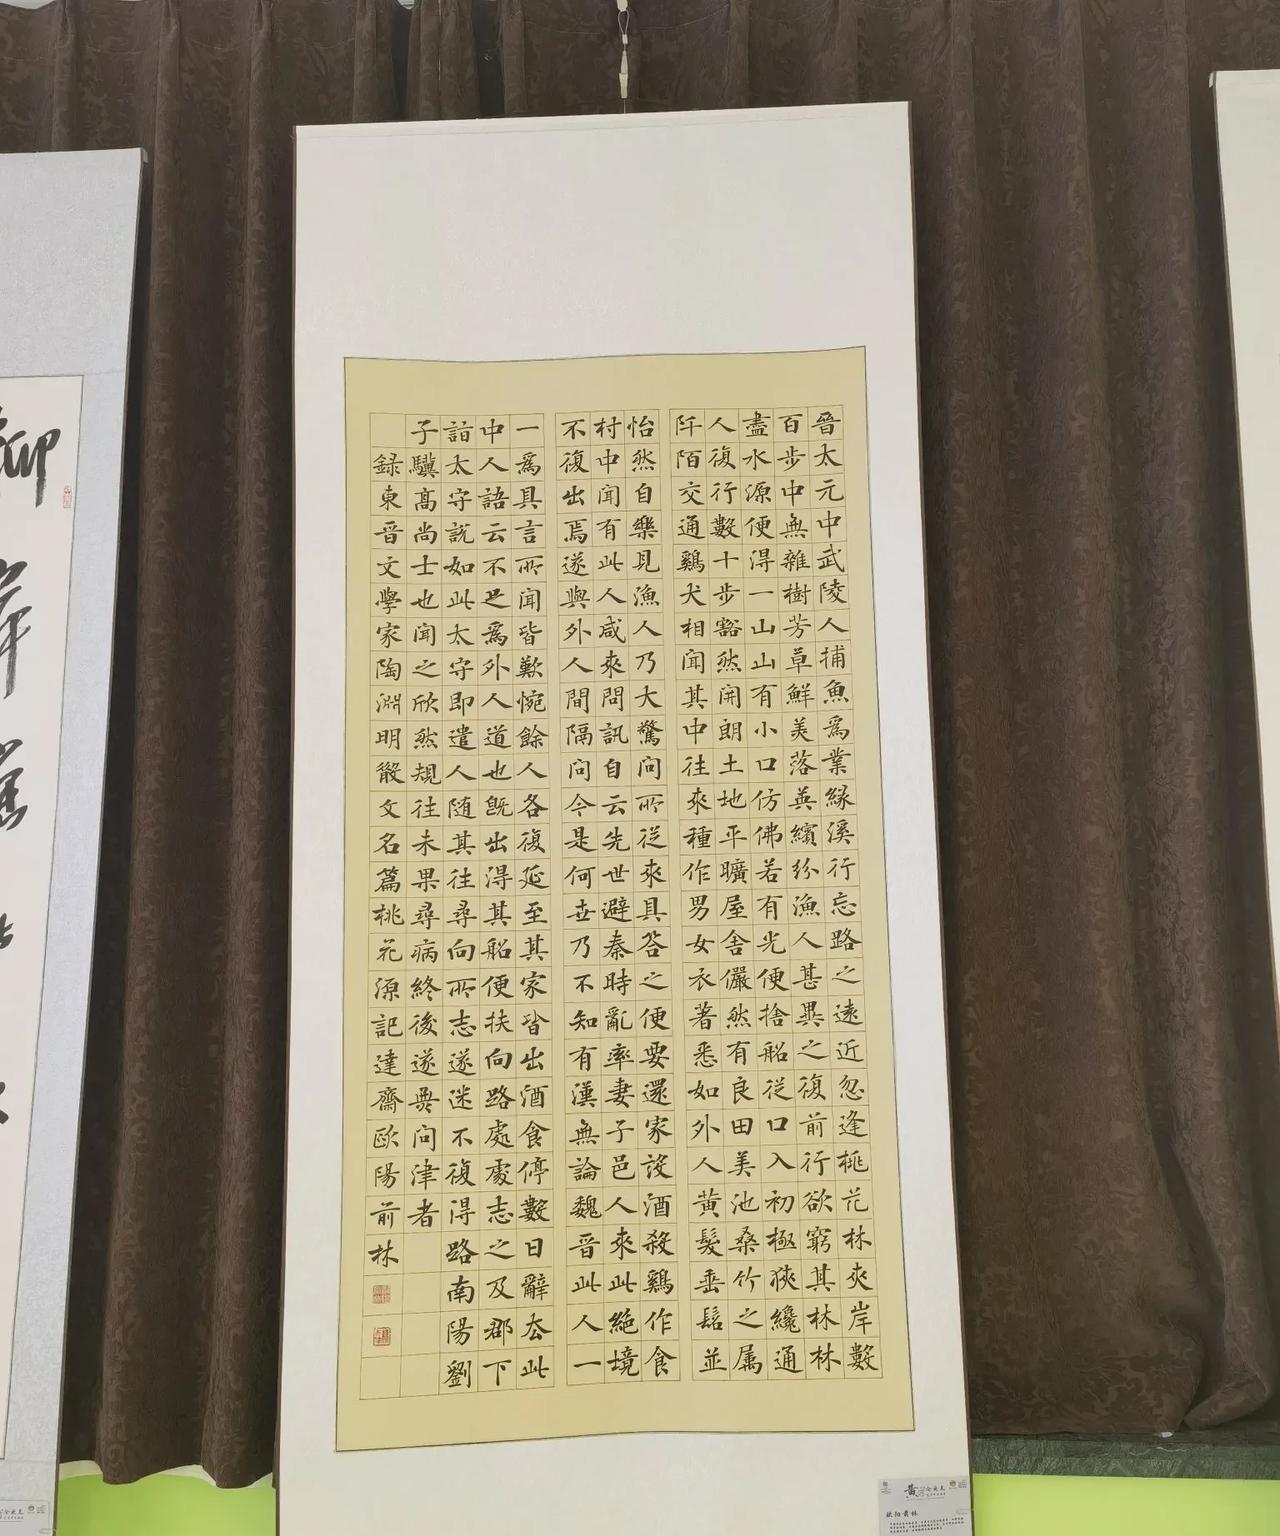 晉太元中武陵人捕魚爲業緣溪行忘路之遠近忽逢桃花林夾岸數
百步中無雜樹芳草鮮美落英繽紛漁人甚異之復前行欲窮其林林
盡水源便得一山山有小口仿佛若有光便捨船從口入初極狹纔通
人復行數十步豁然開朗土地平曠屋舍儼然有良田美池桑竹之属
阡陌交通鷄犬相聞其中往來種作男女衣著悉如外人黃髮垂髫並
怡然自樂見漁人乃大驚問所從來具答之便要還家設酒殺鷄作食
村中聞有此人咸來問訊自云先世避秦時亂率妻子邑人來此絕境
不復出焉遂與外人間隔問今是何世乃不知有漢無論魏晉此人一
一爲具言所聞皆歎惋餘人各復延至其家皆出酒食停數日辭去此
中人語云不足爲外人道也既出得其船便扶向路處處志之及郡下
詣太守說如此太守即遣人随其往尋向所志遂迷不復得路南陽劉
子驥高尚士也聞之欣然規往未果尋病終後遂無問津者
録東晉文學家陶淵明散文名篇桃花源記達齋歐陽前林
欧阳前林